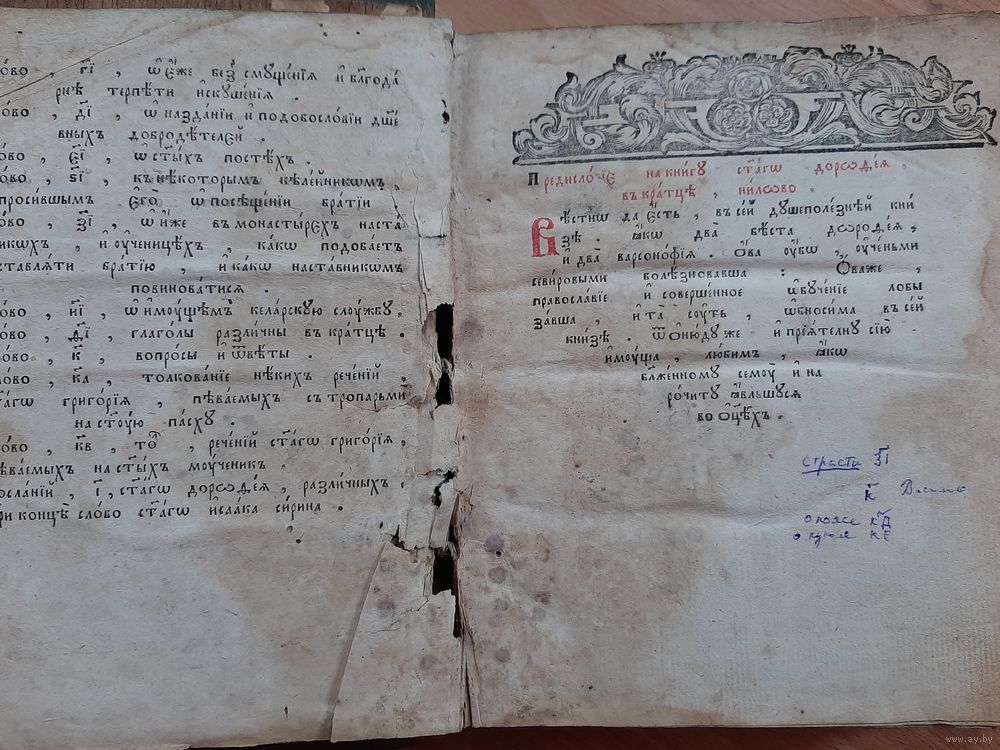 ово , г҃і , ѿ є҆́же без̾ смꙋще́нїѧ и҆ бл҃года́
рнѣ терпѣ́ти и҆скꙋше́нїѧ .
ово , д҃і , ѡ҆ назда́нїи и҆ подобосло́вїи дш҃е
вныхъ добродѣ́телей .
о́во , є҃і , ѡ҆ ст҃ы́хъ постѣ́хъ .
о́во , ѕ҃і , къ нѣ́которымъ кѣле́йникѡмъ ,
проси́вшымъ є҆го̀ ѡ҆ посѣще́нїи бра́тїи
о́во , з҃і , ѡ҆ и҆́же въ монастырѣ́хъ наста́
никѡхъ , и҆ оу҆ченицѣ́хъ , ка́кѡ подоба́етъ
ставлѧ́ти бра́тїю , и҆ ка́кѡ наста́вникѡмъ
повинова́тисѧ .
о́во , и҃і , ѡ҆ и҆мꙋ́щемъ кела́рскꙋю слꙋ́жбꙋ ,
о́во , глаго́лы разли́чны въ кра́тцѣ .
о́во , к҃ , вопро́сы и҆ ѿвѣ́ты .
о́во , к҃а , толкова́нїе нѣ́кихъ рече́нїй ,
ста́гѡ григо́рїѧ , пѣва́емыхъ съ тропарьмѝ
на ст҃ꙋ́ю па́схꙋ .
о́во , к҃в , то́ , рече́нїй ст҃а́гѡ григо́рїѧ ,
ѣва́емыхъ на ст҃ы́хъ мꙋ́ченикъ .
осла́нїй , і҃ , ст҃а́гѡ дорѡѳе́ѧ , разли́чныхъ .
ри концѣ̀ сло́во ст҃а́гѡ и҆саа́ка си́рина .
Предисло́вїе на кни́гꙋ ст҃а́гѡ дорѡѳе́ѧ ,
въ кра́тцѣ , ни́лово .
Вѣ́стнѡ да є҆́сть , въ се́й дꙋшеполе́знѣй кни́
зѣ . ꙗ҆́кѡ два̀ бѣ́ста дѡроѳе́ѧ ,
и҆ два̀ варсоно́фїѧ . ѻ҆́ва оу҆́бѡ , оу҆че́ньми
севи́ровыми болѣ́зновавша : Ѻ҆́ва же ,
правосла́вїе и҆ соверше́нное ѡ҆бꙋче́нїе лобы
за́вша , и҆ та̀ сꙋ́ть , ѡ҆бноси́ма въ се́й
кни́зѣ . ѿѻ҆нюдꙋ́ же и҆ прїѧ́телну сїю̀
и҆мꙋ́ща , лю́бимъ , ꙗ҆́кѡ
бл҃же́нномꙋ семꙋ̀ и҆ на
ро́читꙋ ꙗ҆́вльшꙋсѧ
во ѻ҆ц҃ѣ́хъ .
страсти
к҃
о поясе к҃д
к҃е
www.ay.by